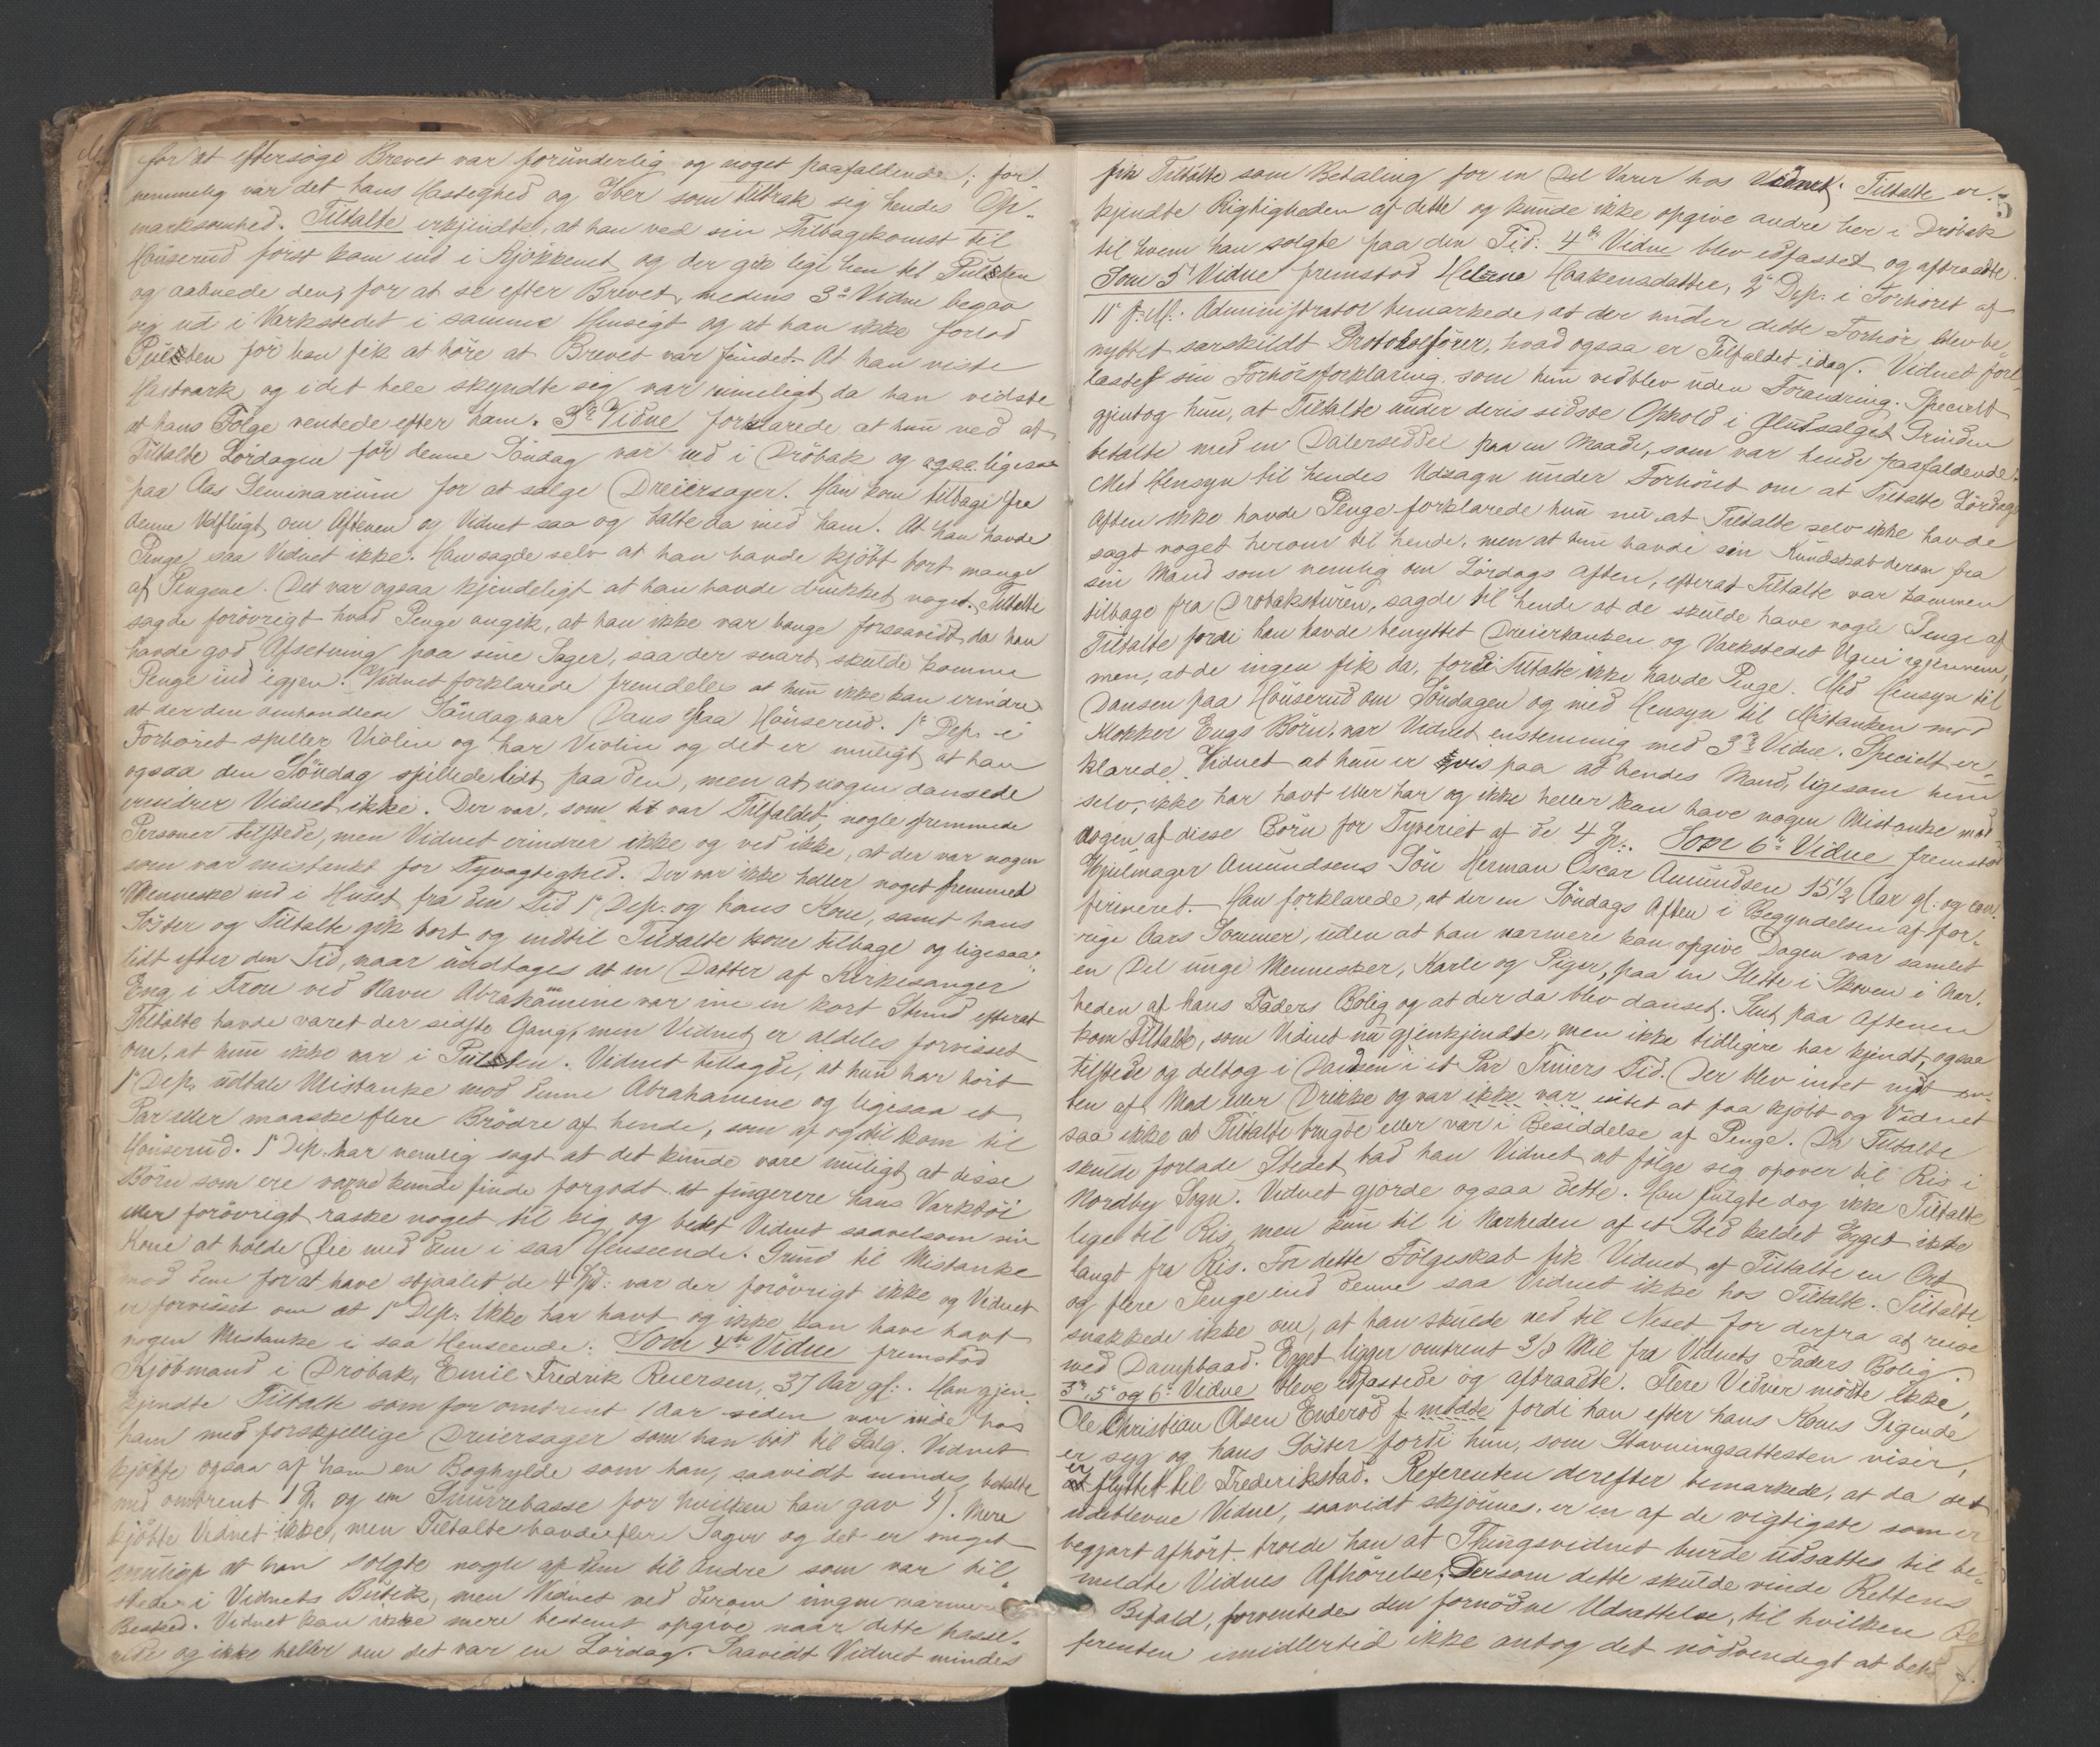 for at eftersøge Brevet var forunderlig og noget paafaldende; for
nemmelig var det hans Hastighed og Iver som tiltrak sig hendes Op-
marksomhed. Tiltalte erkjendte, at han ved sin Tilbagekomst til
Hønserud først kom ind i Kjøkkenet og der gik lige hen til Pulten
og aabnede den, for at se efter Brevet, medens 3die Vidne begav
sig ud i Værkstedet i samme Hensigt og at han ikke forlod
Pulten før han fik at høre at Brevet var fundet. At han viste
Hastværk og i det hele skyndte sig var rimeligt da han vidste
at hans Følge ventede efter ham. 3die Vidne forklarede at hun ved at
Tiltalte Lørdagen før denne Søndag var ned i Drøbak og ogsaa ligesaa
paa Aas Seminarium for at sælge Dreiersager. Han kom tilbage fra
denne Udflugt om Aftenen og Vidnet saa og talte da med ham. At han havde
Penge saa Vidnet ikke. Han sagde selv at han havde kjøbt bort mange
af Pengene. Det var ogsaa kjendeligt at han havde drukket noget. Tiltalte
sagde forøvrigt hvad Penge angik, at han ikke var bange forsaavidt da han
havde god Afsetning paa sine Sager, saa der snart skulde komme
Penge ind igjen. Vidnet forklarede fremdeles at hun ikke kan erindre
at der den omhandlede Søndag var Dans paa Hønserud. 1ste Dep. i
Forhøret spiller Violin og har Violin og det er muligt at han
ogsaa den Søndag spillede lidt paa den, men at nogen dansede
erindrer Vidnet ikke. Der var, som tit var Tilfældet, nogle fremmede
Personer tilstede, men Vidnet erindrer ikke og ved ikke, at der var nogen
som var mistænkt for Tyvagtighed. Der var ikke heller noget fremmed
Menneske ind i Huset fra den Tid 1ste Dep. og hans Kone, samt hans
Søster og Tiltalte gik bort og indtil Tiltalte kom tilbage og ligesaa
lidt efter den Tid, naar undtages at en Datter af Kirkesanger
Eng i Fron ved Navn Abrahamine var inde en kort Stund efterat
Tiltalte havde været der sidste Gang, men Vidnet er aldeles forvisset
om, at hun ikke var i Pulten. Vidnet tillagde, at hun har hørt
1ste Dep. udtale Mistanke mod denne Abrahamine og ligesaa et
Par eller maaske flere Brødre af hende, som af og til kom til
Hønserud. 1ste Dep. har nemlig sagt at det kunde være muligt at disse
Børn som ere vorne kunde finde forgodt at fingerere hans Værktøi
eller forøvrigt raske noget til sig og bedt Vidnet saavelsom sin
Kone at holde Øie med dem i saa Henseende. Grund til Mistanke
mod dem for at have stjaalet de 4 Spd. var der forøvrigt ikke og Vidnet
er forvisset om at 1ste Dep. ikke har havt og ikke kan have havt
nogen Mistanke i saa Henseende. Som 4de Vidne fremstod
Kjøbmand i Drøbak, Emil Fredrik Reiersen, 37 Aar gl. Han gjen
kjendte Tiltalte som for omtrent 1 Aar siden var inde hos
ham med forskjellige Dreiersager som han bød til Salg. Vidnet
kjøbte ogsaa af ham en Boghylde som han, saavidt mindes, betalte
med omtrent 1 Spd. og en Snurrebasse for hvilken han gav 4 s. Mere
kjøbte Vidnet ikke, men Tiltalte havde flere Sager og det er meget
muligt at han solgte nogle af dem til andre som var til
stede i Vidnets Butik, men Vidnet ved derom ingen nærmere
Besked. Vidnet kan ikke mere bestemt opgive naar dette passe-
rede og ikke heller om det var en Lørdag. Saavidt Vidnet mindes
5
fik Tiltalte som Betaling for en Del Varer hos Vidnet. Tiltalte er-
kjendte Rigtigheden af dette og kunde ikke opgive andre her i Drøbak
til hvem han solgte paa den Tid. 4de Vidne blev edfæstet og aftraadte.
Som 5te Vidne fremstod Helene Haakensdatter, 2den Dep. i Forhøret af
11te f. M. Administrator bemærkede, at der under dette Forhør blev be-
nyttet særskildt Protokolfører, hvad ogsaa er Tilfældet idag. Vidnet fore-
læstes sin Forhørsforklaring som hun vedblev uden Forandring. Specielt
gjentog hun, at Tiltalte under deres sidste Ophold i Øludsalget Grinden
betalte med en Dalerseddel paa en Maade, som var hende paafaldende.
Med Hensyn til hendes Udsagn under Forhøret om at Tiltalte Lørdags
Aften ikke havde Penge forklarede hun nu, at Tiltalte selv ikke havde
sagt noget herom til hende, men at hun havde sin Kundskab derom fra
sin Mand som nemlig om Lørdags Aften, efterat Tiltalte var kommen
tilbage fra Drøbaksturen, sagde til hende at de skulde have nogle Penge af
Tiltalte fordi han havde benyttet Dreierbænken og Værkstedet Ugen igjennem,
men, at de ingen fik da, fordi Tiltalte ikke havde Penge. Med Hensyn til
Dansen paa Hønserud om Søndagen og med Hensyn til Mistanken mod
Klokker Engs Børn, var Vidnet enstemmig med 3die Vidne. Specielt er-
klarede Vidnet at hun er vis paa at hendes Mand, ligesom hun
selv, ikke har havt eller har og ikke heller kan have nogen Mistanke mod
nogen af disse Børn for Tyveriet af de 4 Spd. Som 6te Vidne fremstod
Hjulmager Amundsens Søn Herman Oscar Amundsen 15½ Aar gl. og con-
firmeret. Han forklarede, at der en Søndags Aften i Begyndelsen af for-
rige Aars Sommer, uden at han nærmere kan opgive Dagen var samlet
en Del unge Mennesker, Karle og Piger, paa en Slette i Skoven i Nær-
heden af hans Faders Bolig og at der da blev danset. Sent paa Aftenen
kom Tiltalte, som Vidnet nu gjenkjendte, men ikke tidligere har kjendt, ogsaa
tilstede og deltog i Dandsen i et Par Timers Tid. Der blev intet nydt en-
ten af Mad eller Drikke og var ikke var intet at faa kjøbt og Vidnet
saa ikke at Tiltalte brugte eller var i Besiddelse af Penge. Da Tiltalte
skulde forlade Stedet bad han Vidnet at følge sig opover til Ris i
Nordby Sogn. Vidnet gjorde ogsaa dette. Han fulgte dog ikke Tiltalte
lige til Ris, men kun til i Nærheden af et Sted kaldet Egget ikke
langt fra Ris. For dette Følgeskab fik Vidnet af Tiltalte en Ort
og flere Penge end denne saa Vidnet ikke hos Tiltalte. Tiltalte
snakkede ikke om, at han skulde ned til Neset for derfra at reise
med Dampbaad. Egget ligger omtrent 3/8 Mil fra Vidnets Faders Bolig.
3die, 5te og 6te Vidne bleve edfæstede og aftraadte. Flere Vidner mødte ikke,
Ole Christian Olsen Enderød f. mødte fordi han efter hans Kones Sigende
er syg og hans Søster fordi hun, som Stævningsattesten viser,
er flyttet til Frederikstad. Referenten derefter bemærkede, at da det
udeblevne Vidne, saavidt skjønnes, er en af de vigtigste som er
begjært afhørt troede han at Thingsvidnet burde udsættes til be-
meldte Vidnes Afhørelse. Dersom dette skulde vinde Rettens
Bifald, forventedes den fornødne Udsættelse, til hvilken Re
ferenten imidlertid ikke antog det nødvendigt at